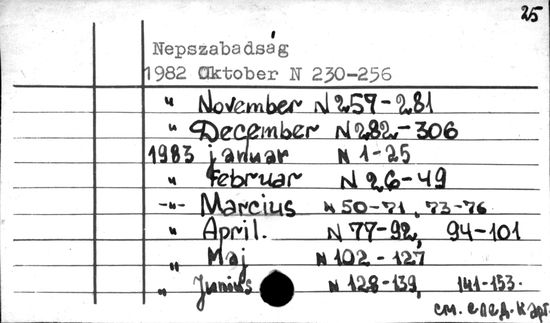 25
Nepszabadság
1982 Oktober N 230-256
" November N 257-281
" December N 282-306
1983 januar N 1-25
" Februar N 26-49
-"- Marcius N 50-71, 73-76
" April. N 77-92, 94-101
" Maj N 102-127
" Junius N 128-139, 141-153.
см. след. карт.